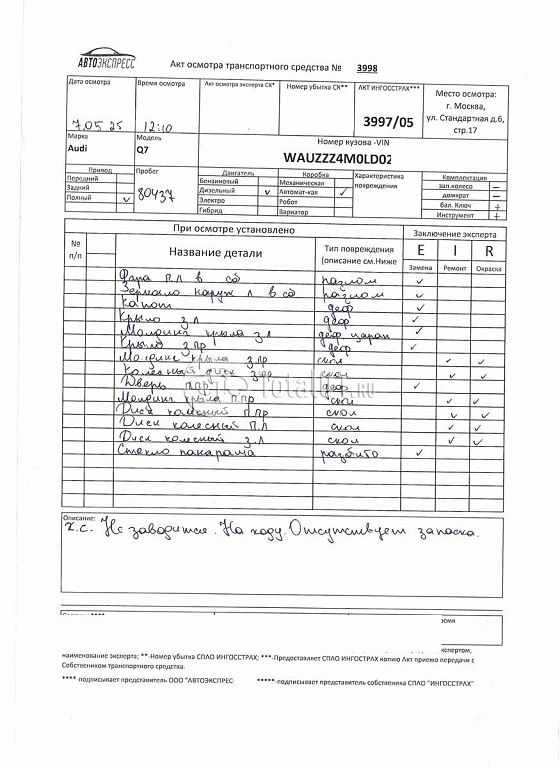 АВТОЭКСПРЕСС
Акт осмотра транспортного средства № 3998
Дата осмотра
7.05 25
Время осмотра
12:10
Акт осмотра эксперта СК*
Номер убытка СК**
АКТ ИНГОССТРАХ***
3997/05
Место осмотра:
г. Москва,
ул. Стандартная д.6,
стр.17
Марка
Audi
Модель
Q7
Номер кузова -VIN
WAUZZZ4M0LD02
Привод
Передний
Задний
Полный v
Пробег
80437
Двигатель
Бензиновый
Дизельный v
Электро
Гибрид
Коробка
Механическая
Автомат-кая ✓
Робот
Вариатор
Характеристика
повреждения
Комплектация
зап.колесо —
домкрат —
бал. Ключ +
Инструмент +
При осмотре установлено
Заключение эксперта
№
п/п
Название детали
Тип повреждения
(описание см.Ниже
E I R
Замена Ремонт Окраска
Фара п.л в сб разлом ✓
Зеркало наруж л в сб разлом ✓
Капот деф ✓
Крыло з.л деф ✓
Молдинг крыла з.л деф царап ✓
Крыло з.пр деф ✓
Молдинг крыла з.пр скол ✓ ✓
Колесный диск з.пр скол ✓ ✓
Дверь п.пр деф ✓
Молдинг крыла п.пр скол ✓ ✓
Диск колесный п.пр скол ✓ ✓
Диск колесный п.л скол ✓ ✓
Диск колесный з.л скол ✓ ✓
Стекло панорама разбито ✓
Total01.ru
Описание:
х.с. Не заводится. На ходу. Отсутствует запаска.
ремя
кспертом,
наименование эксперта; **-Номер убытка СПАО ИНГОССТРАХ; ***-Предоставляет СПАО ИНГОСТРАХ копию Акт приемо передачи с
Собствеником транспортного средства.
****-подписывает представитель ООО "АВТОЭКСПРЕС
*****-подписывает представитель собственика СПАО "ИНГОССТРАХ"